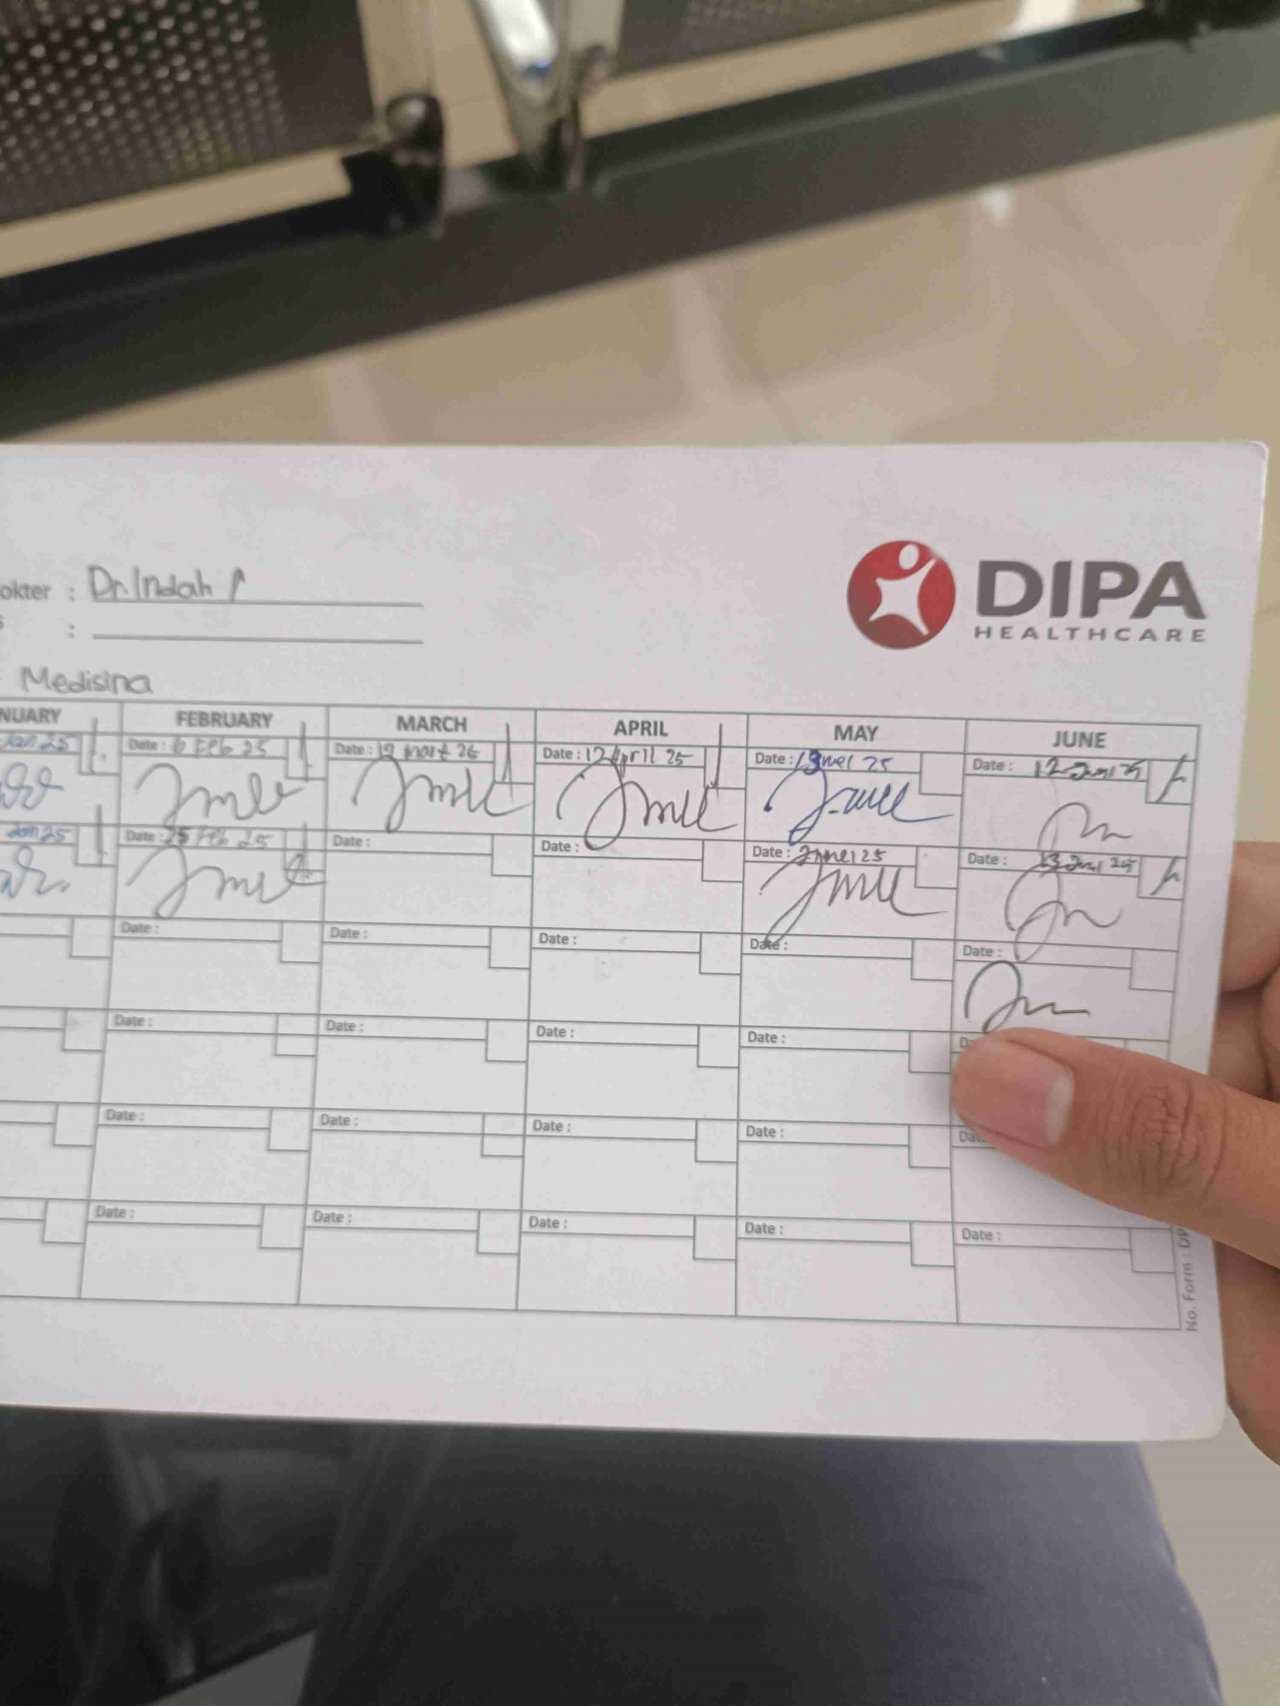 DIPA
HEALTHCARE
okter : Dr. Indah P
s :
Medisina
NUARY FEBRUARY MARCH APRIL MAY JUNE
Jan 25 Date : 6 Feb 25 Date : Date : 12 April 25 Date : 13 mei 25 Date : 12 Juni 25
Jan 25 Date : 25 Feb 25 Date : Date : Date : mei 25 Date : 13 Juni 25
Date : Date : Date : Date : Date :
Date : Date : Date : Date : Da
Date : Date : Date : Date : Da
Date : Date : Date : Date : Date :
No. Form : DI